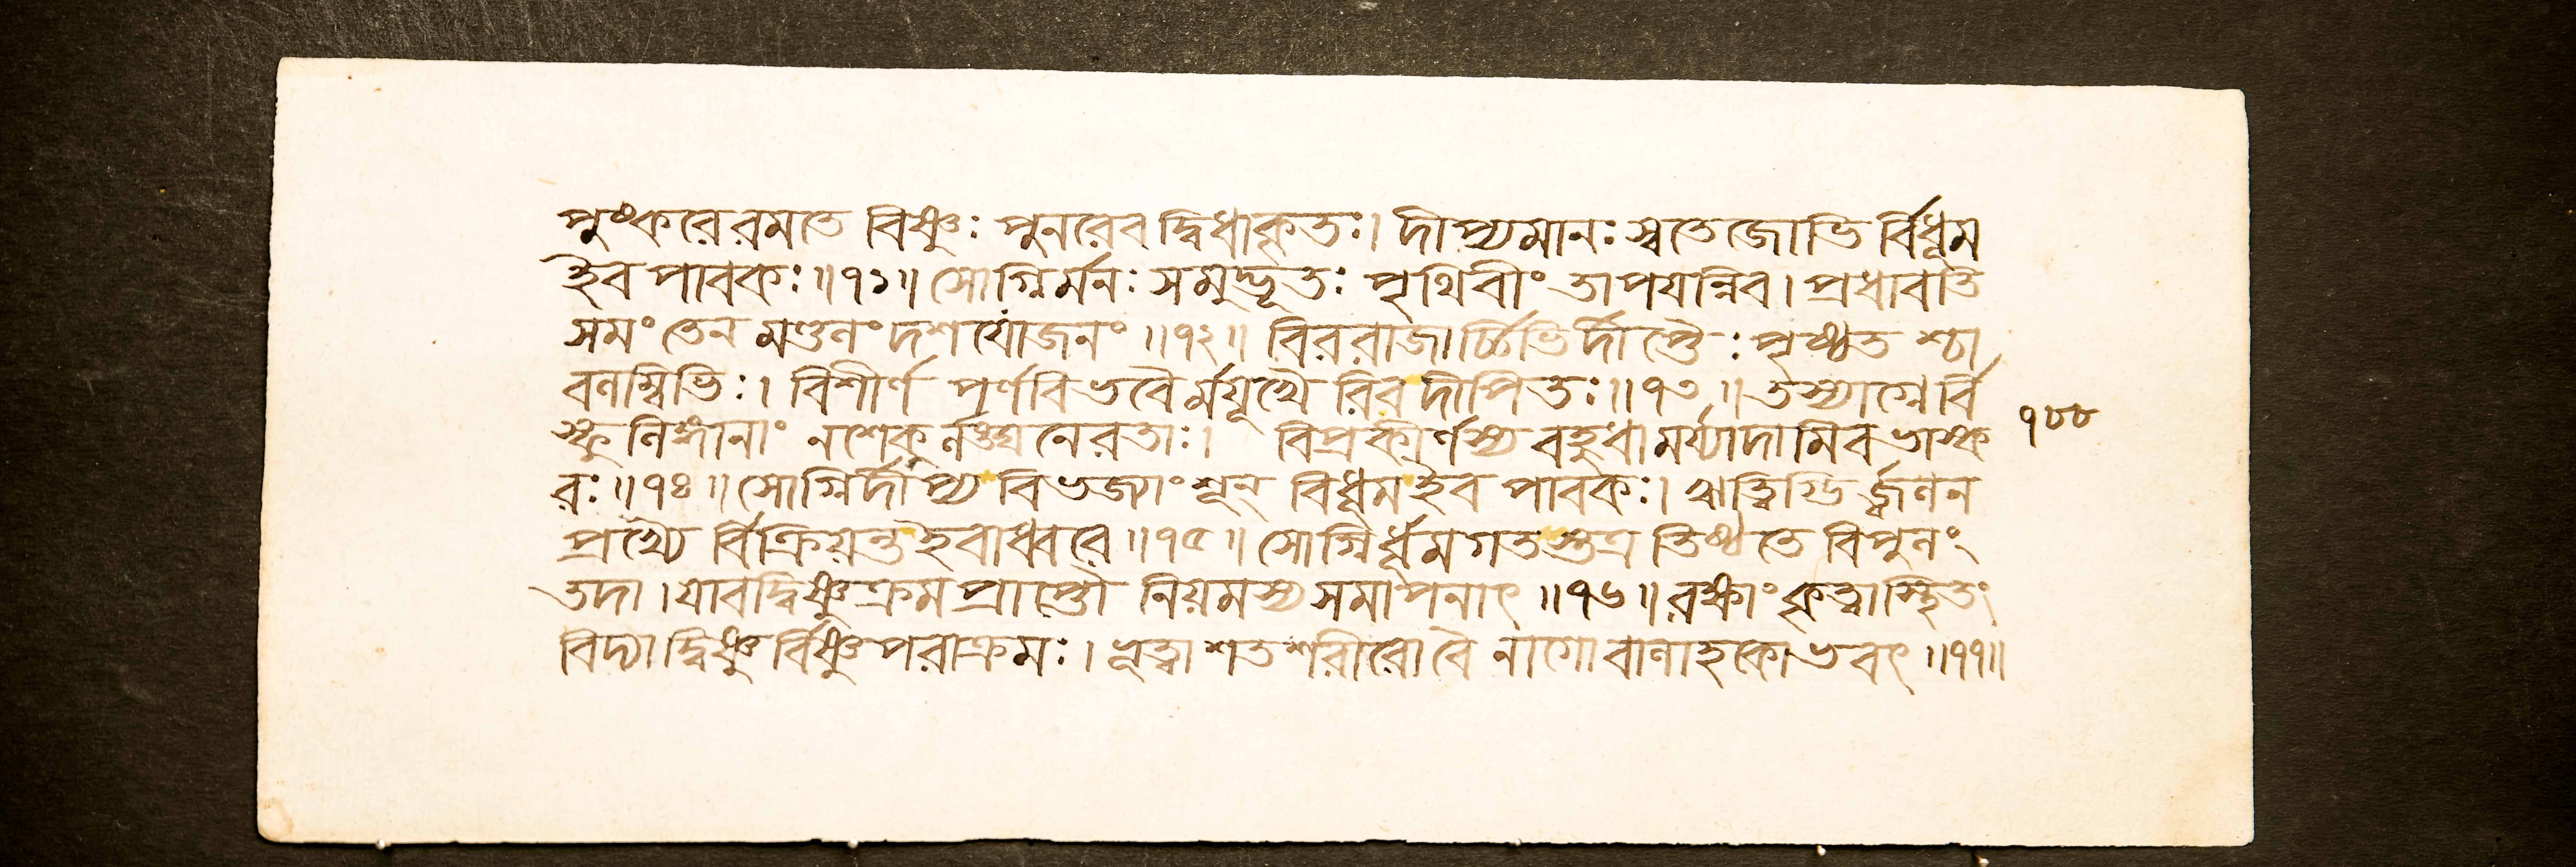 পুংকরেরমতে বিষ্ণুঃ পুনরেব দ্বিধাকৃতঃ। দীপ্যমানঃ স্বতেজোভি র্বিধূম
ইব পাবকঃ॥৭১॥ সোগ্নির্মনঃ সমুদ্ভূতঃ পৃথিবীং তাপযন্নিব। প্রধাবতি
সমং তেন মণ্ডলং দশ যোজনং॥৭২॥ বিররাজার্চ্চিভির্দীপ্তৈঃ পৃষ্ঠত শ্চা
বলম্বিভিঃ। বিশীর্ণ পর্ণবিভবৈর্ময়ূখৈ রিব দীপিতঃ॥৭৩॥ তস্যাগ্নের্বি
স্ফুলিঙ্গানাং নশেকুর্লঙ্ঘনেরতাঃ। বিপ্রকীর্ণস্য বহুধা মর্য্যাদামিব ভাস্ক
রঃ॥৭৪॥ সোগ্নির্দীপ্য বিভজ্যাংশূন্ বিধূম ইব পাবকঃ। ঋত্বিগ্ভি র্জ্বলন
প্রখ্যৈ র্বিক্রিয়ন্ত ইবাধ্বরে॥৭৫॥ সোগ্নির্ধূমগতস্তত্র তিষ্ঠতে বিপুলং
তদা। যাবদ্বিষ্ণুক্রমপ্রাপ্তৌ নিয়মস্য সমাপনাৎ॥৭৬॥ রক্ষাং কৃত্বাস্থিতং
বিদ্যাদ্বিষ্ণু র্বিষ্ণুপরাক্রমঃ। ভূত্বা শতশরীরো বৈ নাগো বালাহকোভবৎ॥৭৭॥
৭৮৮